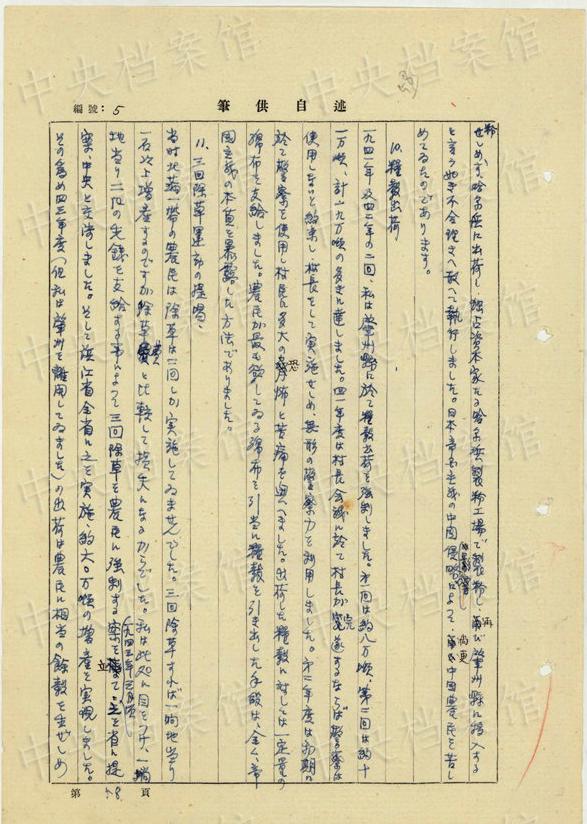 中央档案馆
編號：5
筆供自述
せしめ、哈尓浜に出荷し、独占資本家たる哈尓浜製粉工場で製粉し、再び肇州縣に搬入する
と言う如き不合理さへ敢へて執行しました。日本帝国主義の中国侵略によって、尚更中国農民を苦し
めてゐたのであります。
10. 糧穀出荷
一九四一年及四二年の二回、私は肇州縣に於て糧穀出荷を強制しました。第一回は約八万噸、第二回は約十
一万噸、計一九万噸の多きに達しました。四一年度は村長会議に於て村長が完遂するならば警察は
使用しないと約束し、村長をして実施せしめ、無形の警察力を利用しました。第二年度は初期に
於て警察を使用し村民に多大の恐怖と苦痛を与へました。出荷した糧穀に対しては一定量の
綿布を支給しました。農民が最も欲してゐる綿布を引当に糧穀を引き出した手段は、全く、帝
国主義の本質を暴露した方法でありました。
11. 三回除草運動の提唱、
当時北満一帯の農民は除草は二回しか実施してゐませんでした。三回除草すれば一晌地当り
一石以上増産するのですが除草費と比較して損失になるからでした。私は此処に目をつけ、一晌
地当り二〇の先銭を支給する事によって三回除草を農民に強制する案を立て一九四三年三月頃之を省に提
案中央と交渉しました。そして浜江省全省に之を実施約六〇万噸の増産を実現しました。
その為め四三年度（但私は肇州を離用してゐました）の出荷は農民に相当の餘穀を生ぜしめ
第 58 頁